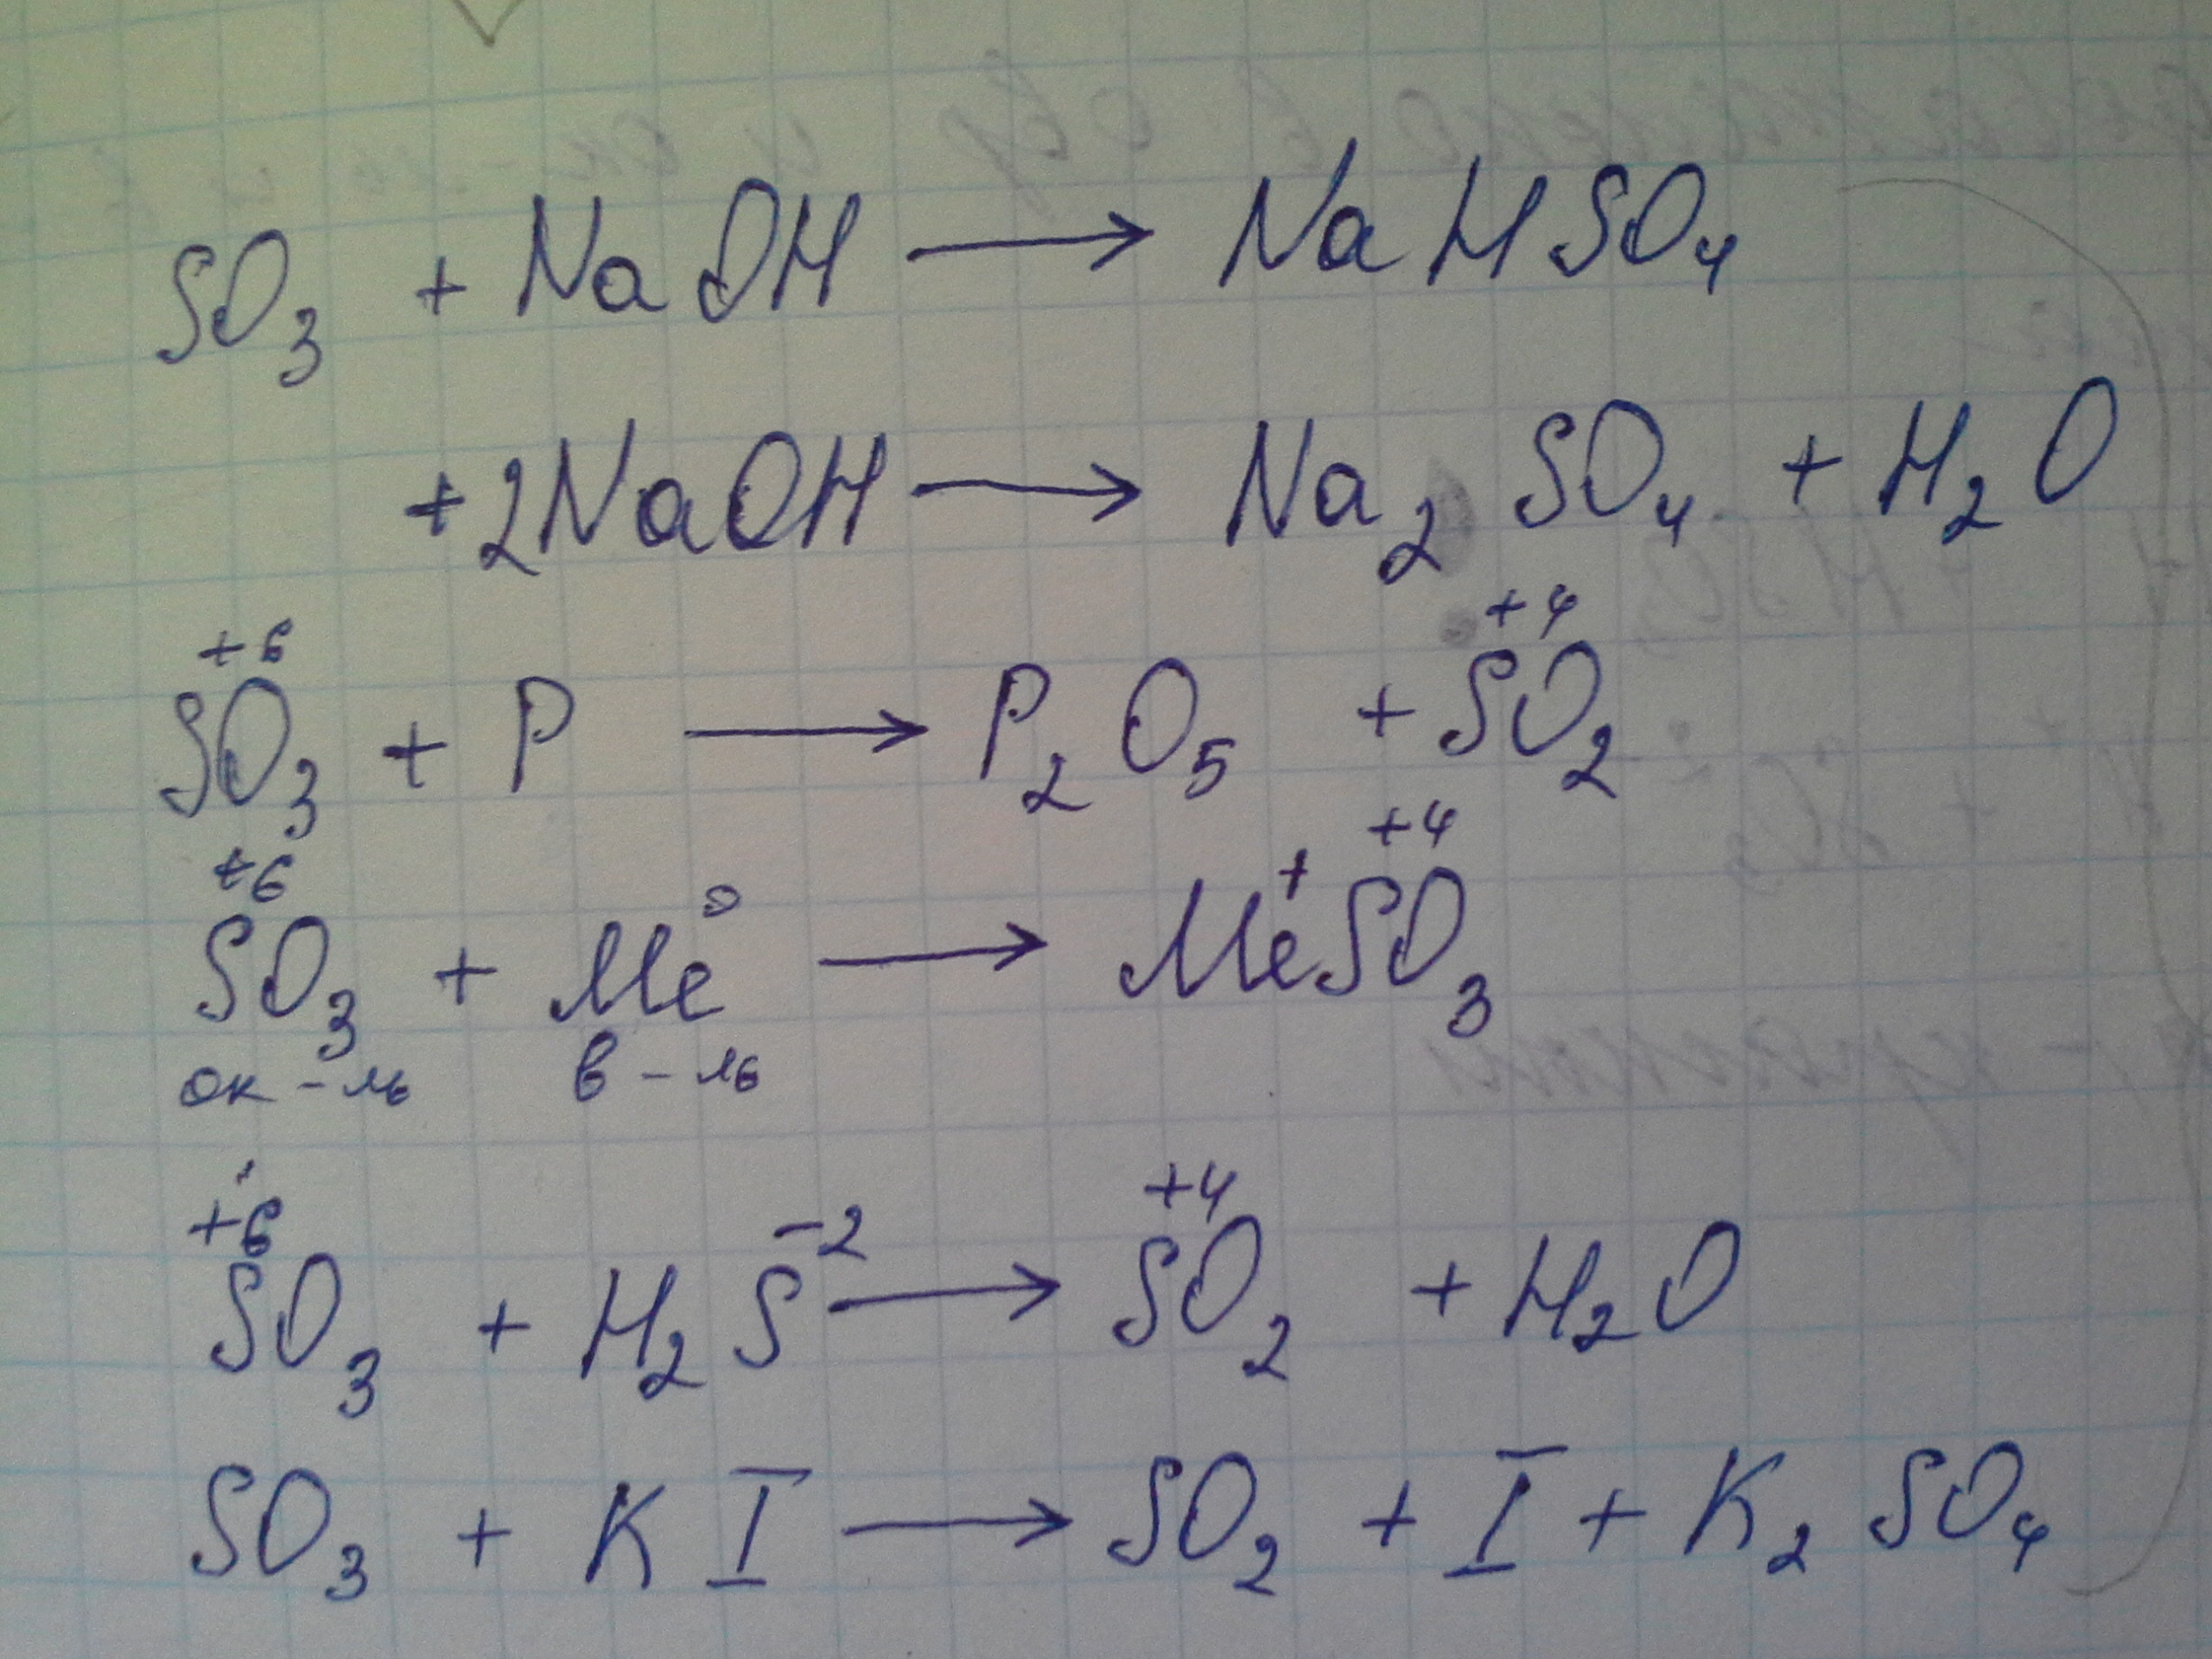 SO₃ + NaOH → NaHSO₄
+2NaOH → Na₂SO₄ + H₂O
+6 +4
SO₃ + P → P₂O₅ + SO₂
+6 0 + +4
SO₃ + Me → MeSO₃
ок-ль в-ль
+6 -2 +4
SO₃ + H₂S → SO₂ + H₂O
SO₃ + KI → SO₂ + I + K₂SO₄